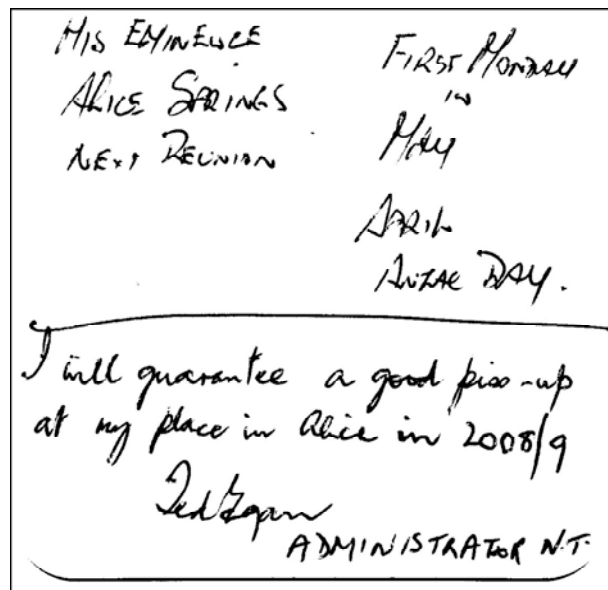 HIS EMINENCE
ALICE SPRINGS
NEXT REUNION
FIRST MONDAY
IN
MAY
APRIL
ANZAC DAY.
I will guarantee a good piss-up
at my place in Alice in 2008/9
Ted Egan
ADMINISTRATOR N.T.